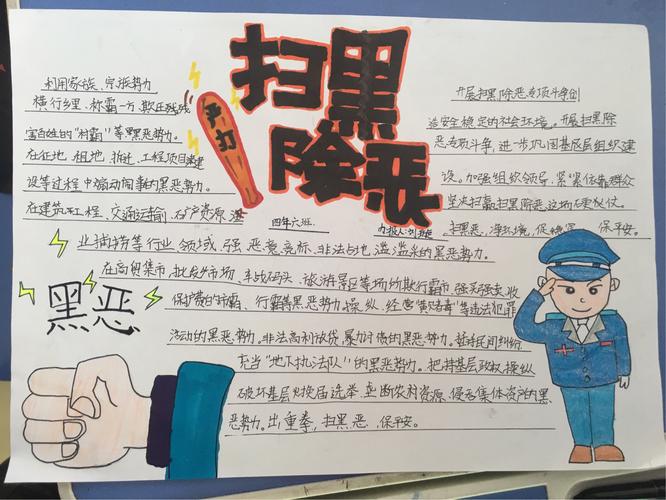 扫黑
除恶
严打
利用家族、宗族势力
横行乡里、称霸一方、欺压残
害百姓的"村霸"等黑恶势力。
在征地、租地、拆迁、工程项目建
设等过程中煽动闹事的黑恶势力。
在建筑工程、交通运输、矿产资源、渔
业捕捞等行业、领域、强、恶意竞标、非法占地、滥采的黑恶势力。
在商贸集市、批发市场、车站码头、旅游景区等场所欺行霸市、强买强卖、收
保护费的市霸、行霸等黑恶势力。操纵、经营"黄赌毒"等违法犯罪
活动的黑恶势力。非法高利放贷、暴力讨债的黑恶势力。插手民间纠纷,
充当"地下执法队"的黑恶势力。把持基层政权、操纵
破坏基层换届选举、垄断农村资源、侵吞集体资产的黑
恶势力。出重拳,扫黑恶、保平安。
开展扫黑除恶专项斗争创
造安全稳定的社会环境。开展扫黑除
恶专项斗争,进步巩固基层组织建
设。加强组织领导,紧紧依靠群众
坚决打赢扫黑除恶这场硬仗。
扫黑恶、净环境、促 保平安。
四年六班
办报人:刘
黑恶